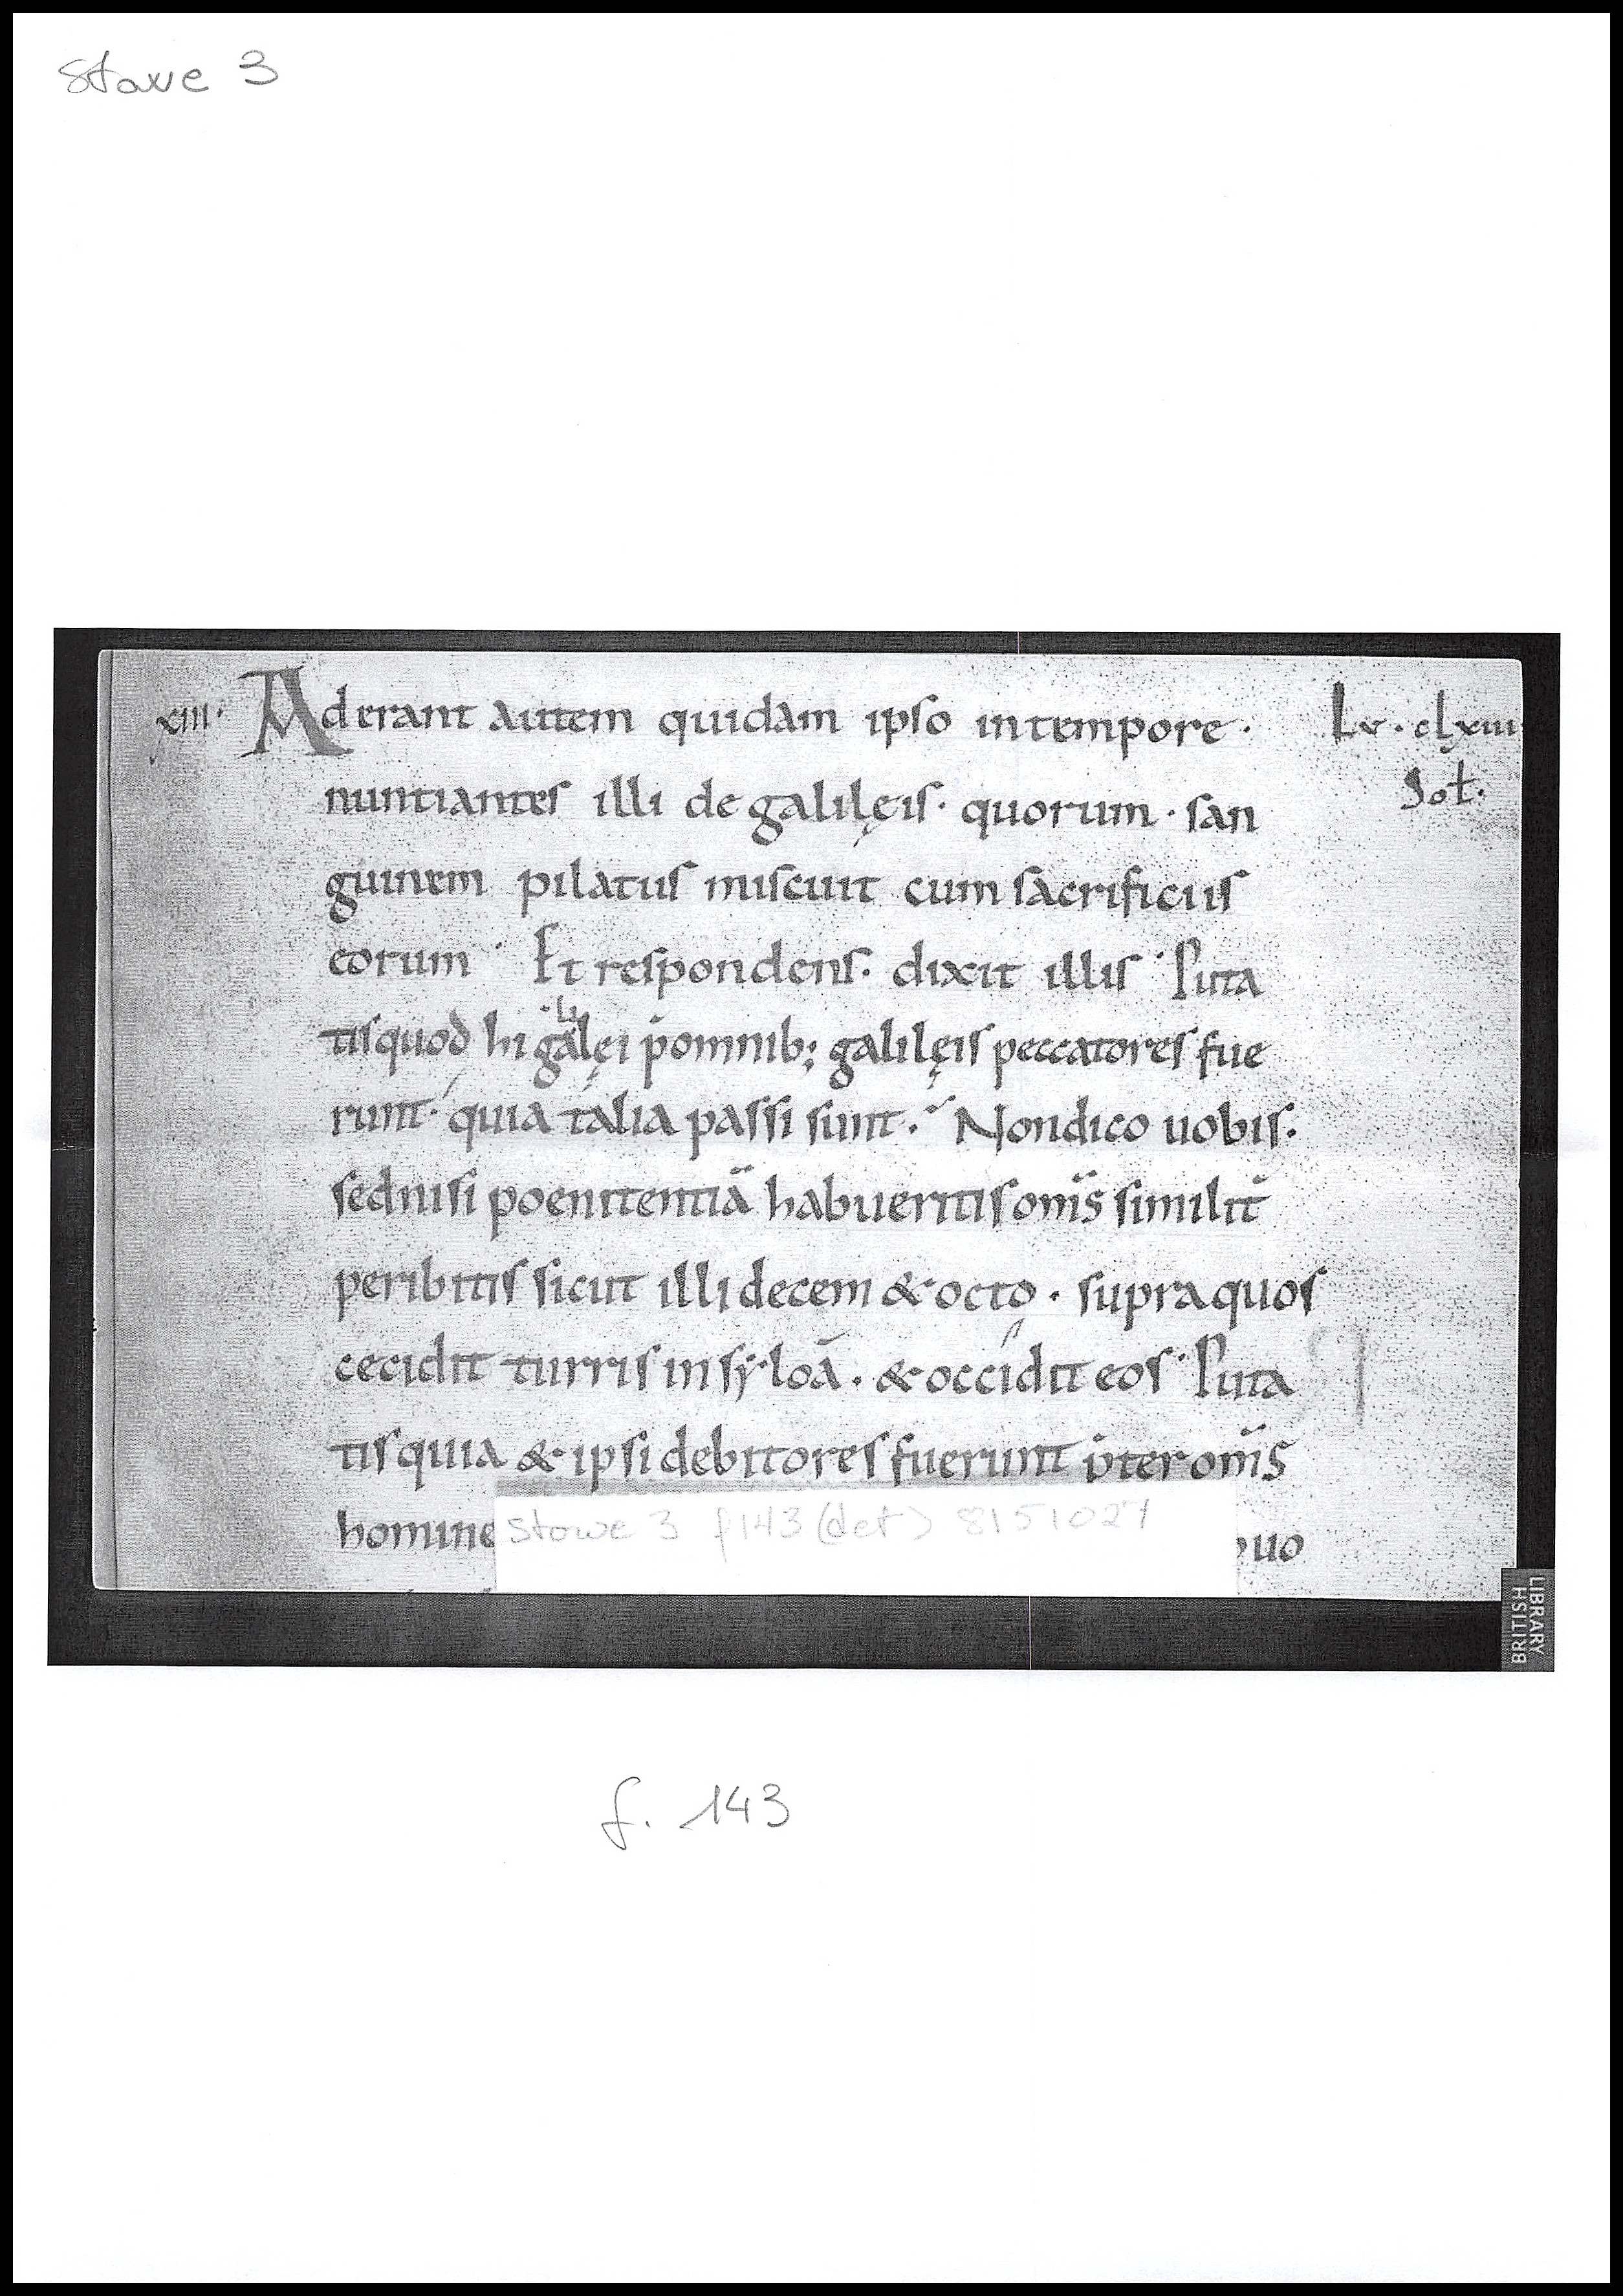 Stowe 3
xiii· Aderant autem quidam ipso in tempore · Lv · clxiii
nuntiantes illi de galilęis · quorum · san Sol̄.
guinem pilatus miscuit cum sacrificiis
eorum · Et respondens · dixit illis · Puta
tis quod hi ga`li´lęi p̄ omnib; galilęis peccatores fue
runt · quia talia passi sunt · Non dico uobis ·
sed nisi poenitentiā habueritis om̄s similit̄
peribitis sicut illi decem & octo · supra quos
cecidit turris in sẏloā · & occidit eos · Puta
tis quia & ipsi debitores fuerunt p̄ter om̄s
homine uo
Stowe 3 f143 (det) 8151027
BRITISH
LIBRARY
f. 143